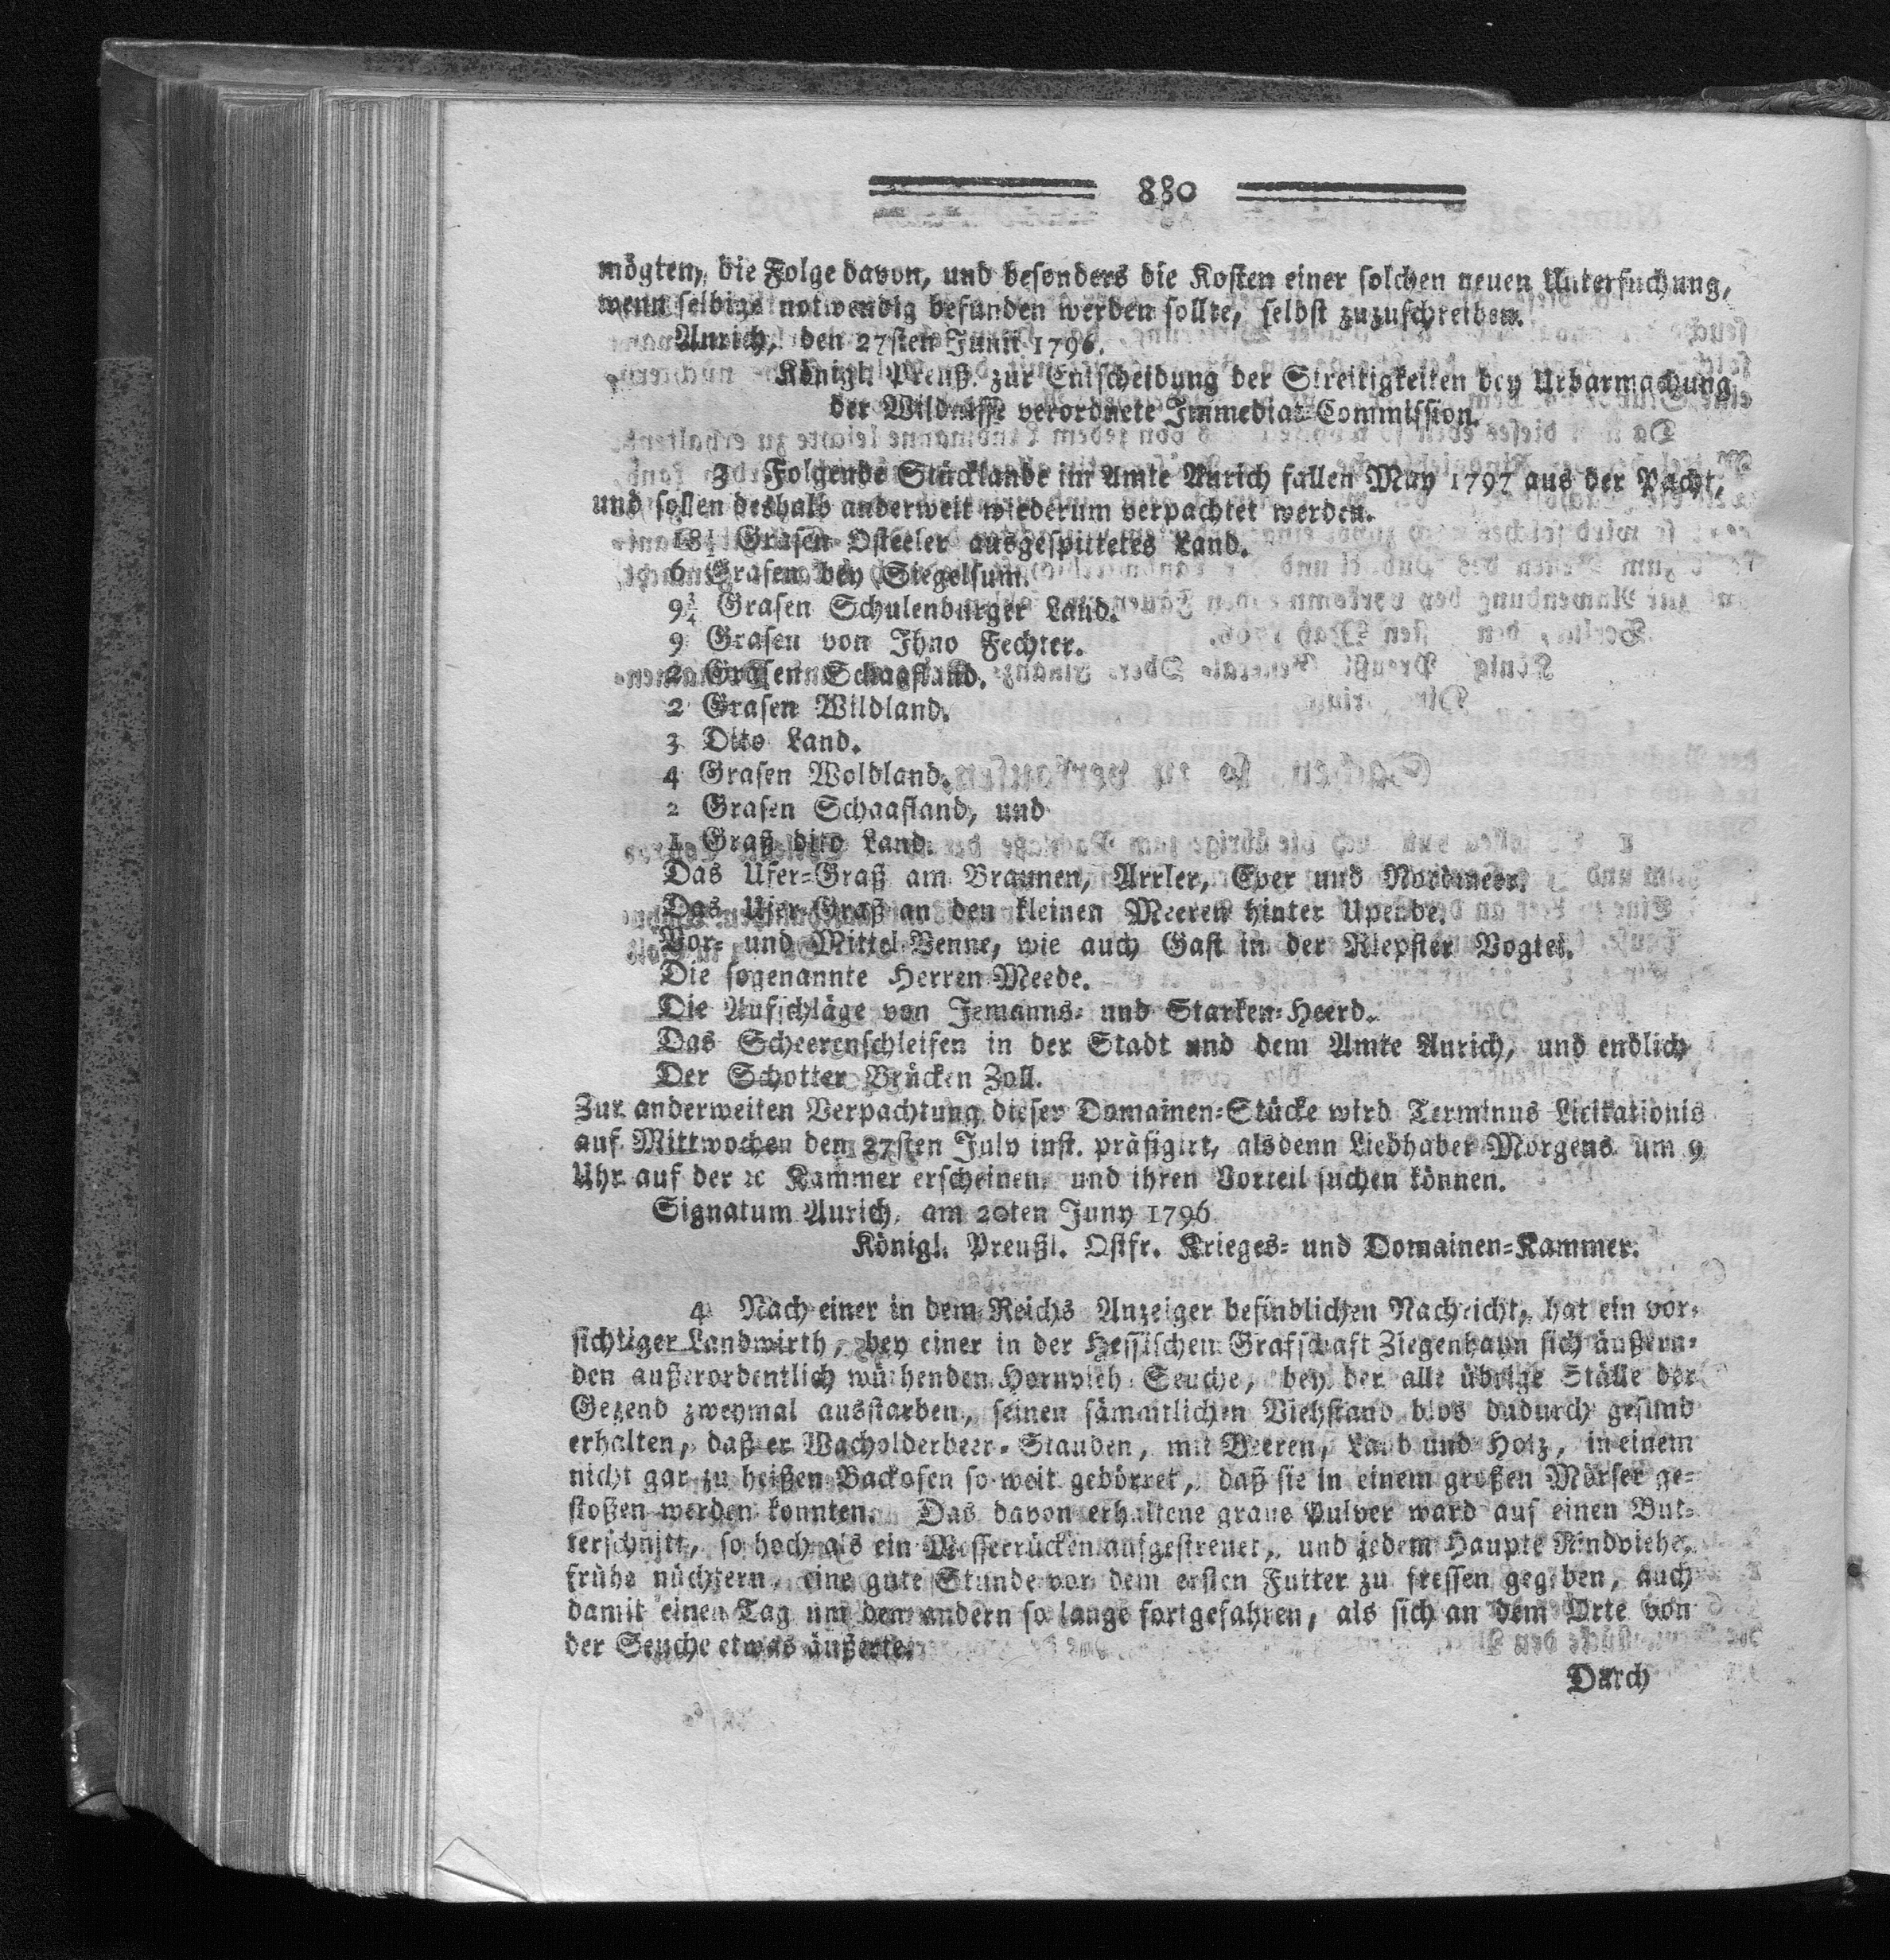 880
mögten, die Folge davon, und besonders die Kosten einer solchen neuen Untersuchung,
wenn selbige notwendig befunden werden sollte, selbst zuzuschreiben.
Aurich, den 27sten Junii 1796.
Königl. Preuß. zur Entscheidung der Streitigkeiten bey Urbarmachung
der Wildnisse verordnete Immediat-Commission.
3 Folgende Stücklande im Amte Aurich fallen May 1797 aus der Pacht,
und sollen deshalb anderweit wiederum verpachtet werden.
Grasen Osteeler ausgespittetes Land.
6 Grasen bey Siegelsum.
9¾ Grasen Schulenburger Land.
9 Grasen von Ihno Fechter.
2 Grasen Schaafland.
2 Grasen Wildland.
3 Dito Land.
4 Grasen Woldland.
2 Grasen Schaafland, und
1 Graß dito Land.
Das Ufer-Graß am Braunen, Arrler, Ever und Nordmeer.
Das Ufer-Graß an den kleinen Meeren hinter Upende.
Vor- und Mittel-Venne, wie auch Gast in der Riepster Vogtei.
Die sogenannte Herren-Meede.
Die Aufschläge von Jemanns- und Starken-Heerd.
Das Scheerenschleifen in der Stadt und dem Amte Aurich, und endlich
Der Schotter Brücken Zoll.
Zur anderweiten Verpachtung dieser Domainen-Stücke wird Terminus Licitationis
auf Mittwochen den 27sten July inst. präfigirt, alsdenn Liebhaber Morgens um 9
Uhr auf der ꝛc Kammer erscheinen, und ihren Vorteil suchen können.
Signatum Aurich, am 20ten Juny 1796.
Königl. Preußl. Ostfr. Krieges- und Domainen-Kammer.
4 Nach einer in dem Reichs Anzeiger befindlichen Nachricht, hat ein vor-
sichtiger Landwirth, bey einer in der Hessischen Grafschaft Ziegenhayn sich äußern-
den außerordentlich wüthenden Hornvieh-Seuche, bey der alle übrige Ställe der
Gegend zweymal ausstarben, seinen sämmtlichen Viehstand blos dadurch gesund
erhalten, daß er Wacholderbeer-Stauden, mit Beeren, Laub und Holz, in einem
nicht gar zu heißen Backofen so weit gedörret, daß sie in einem großen Mörser ge-
stoßen werden konnten. Das davon erhaltene graue Pulver ward auf einen But-
terschnitt, so hoch als ein Messerrücken aufgestreuet, und jedem Haupte Rindviehe,
frühe nüchtern, eine gute Stunde vor dem ersten Futter zu fressen gegeben, auch
damit einen Tag um den andern so lange fortgefahren, als sich an dem Orte von
der Seuche etwas äußerte.
Durch